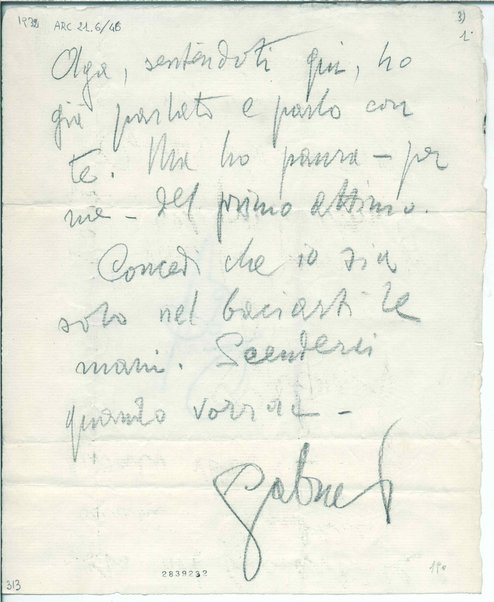 1938 ARC 21.6/46 3)
1.
Olga, sentendoti qui, ho
già parlato e parlo con
te. Ma ho paura – per
me – del primo attimo.
Concedi che io sia
solo nel baciarti le
mani. Scenderai
quando vorrai –
Gabriel
2839232
313